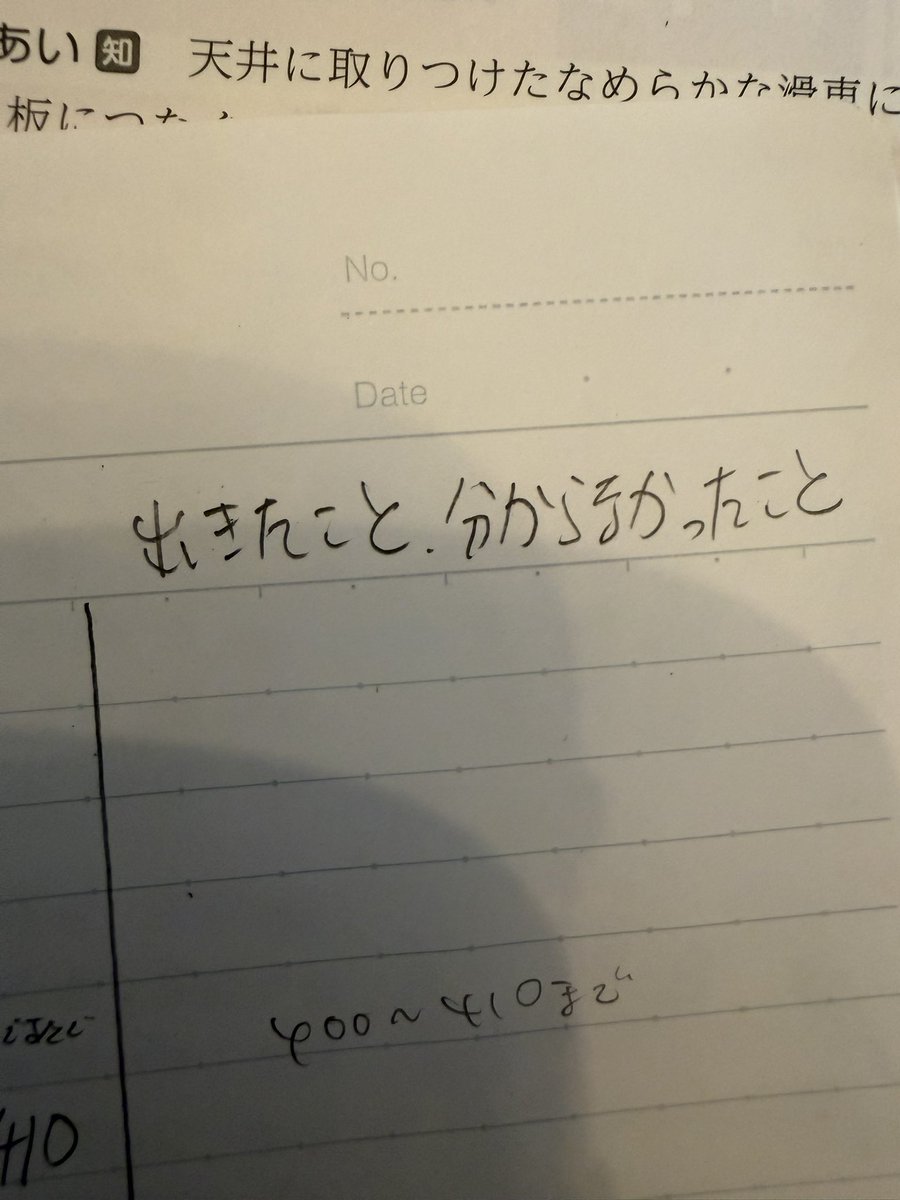 あい 知 天井に取りつけたなめらかな滑車に
板につ
No.
Date
出きたこと.分からなかったこと
400〜410まで
410